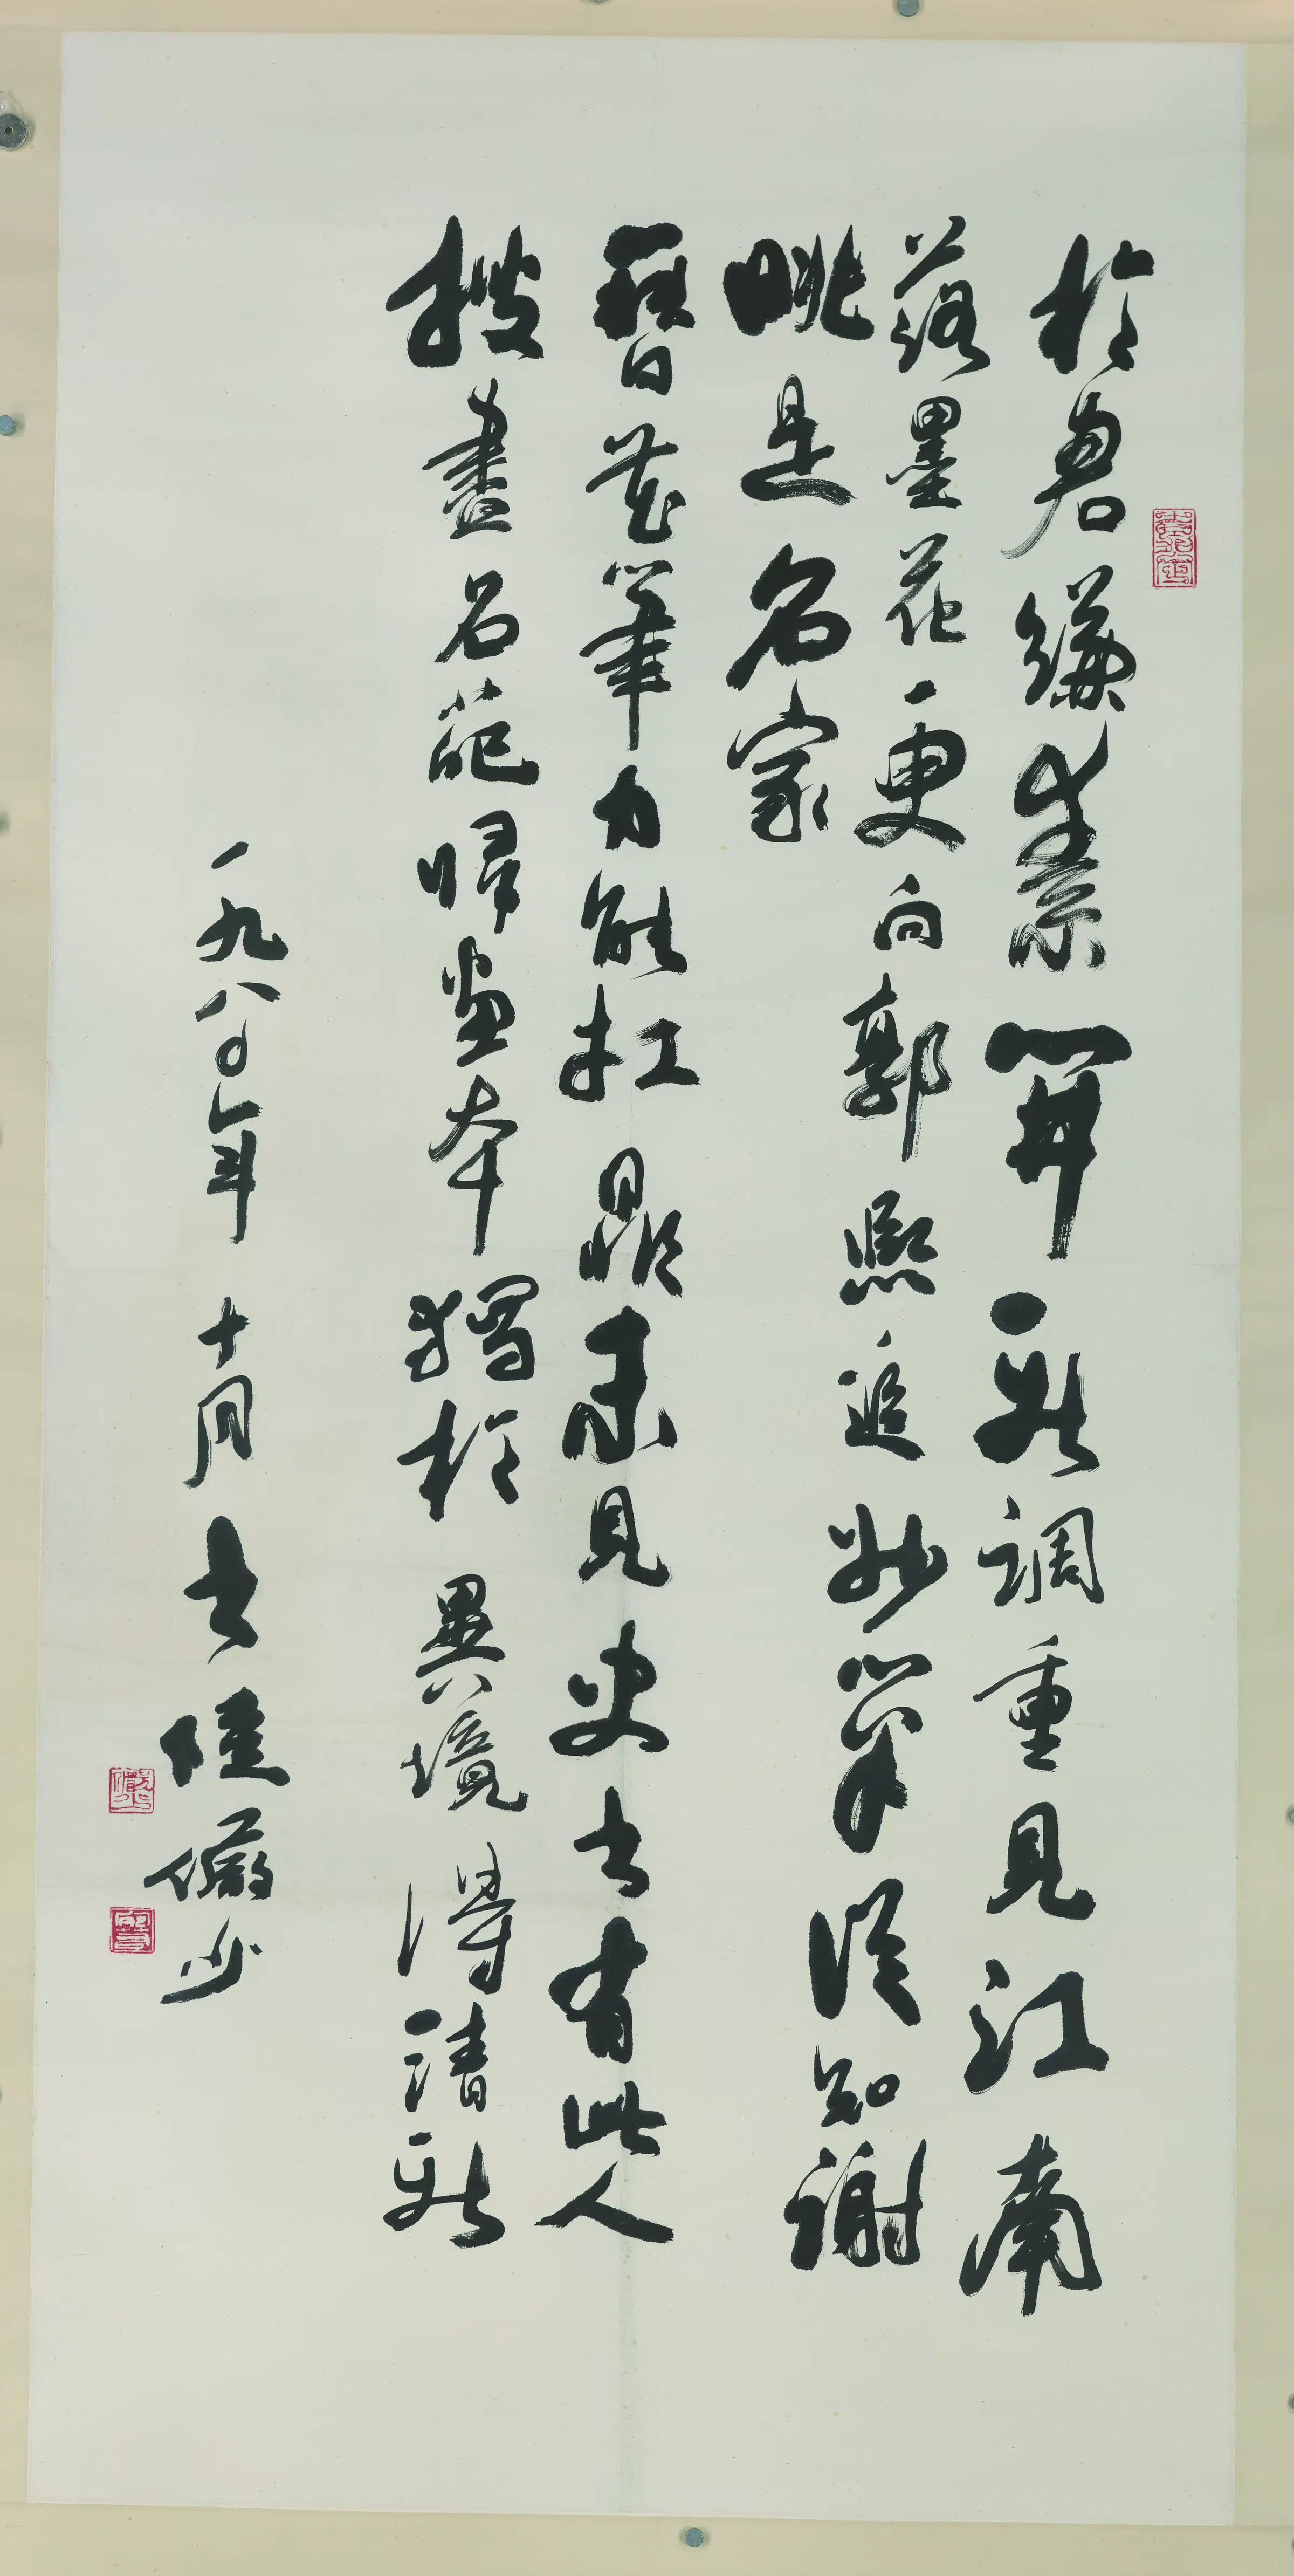 於君縑素開新調重見江南
落墨花更向郭熙追妙筆從知謝
眺是名家
替花筆力能扛鼎未見史書有此人
搜盡名葩歸畫本獨於異境得清新
一九八〇年十月書陸儼少